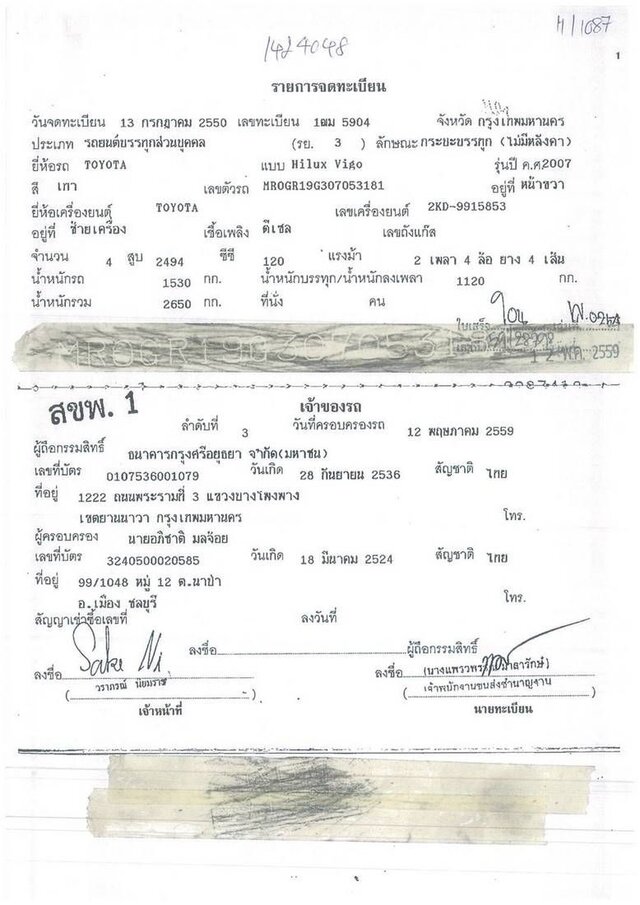 1424048
1
รายการจดทะเบียน
วันจดทะเบียน 13 กรกฎาคม 2550 เลขทะเบียน 1ฒม 5904 จังหวัด กรุงเทพมหานคร
ประเภท รถยนต์บรรทุกส่วนบุคคล (รย. 3 ) ลักษณะ กระบะบรรทุก (ไม่มีหลังคา)
ยี่ห้อรถ TOYOTA แบบ Hilux Vigo รุ่นปี ค.ศ.2007
สี เทา เลขตัวรถ MR0GR19G307053181 อยู่ที่ หน้าขวา
ยี่ห้อเครื่องยนต์ TOYOTA เลขเครื่องยนต์ 2KD-9915853
อยู่ที่ ซ้ายเครื่อง เชื้อเพลิง ดีเซล เลขถังแก๊ส
จำนวน 4 สูบ 2494 ซีซี 120 แรงม้า 2 เพลา 4 ล้อ ยาง 4 เส้น
น้ำหนักรถ 1530 กก. น้ำหนักบรรทุก/น้ำหนักลงเพลา 1120 กก.
น้ำหนักรวม 2650 กก. ที่นั่ง คน
ใบเสร็จ
12 พ.ค. 2559
สขพ. 1
เจ้าของรถ
ลำดับที่ 3 วันที่ครอบครองรถ 12 พฤษภาคม 2559
ผู้ถือกรรมสิทธิ์ ธนาคารกรุงศรีอยุธยา จำกัด(มหาชน)
เลขที่บัตร 0107536001079 วันเกิด 28 กันยายน 2536 สัญชาติ ไทย
ที่อยู่ 1222 ถนนพระรามที่ 3 แขวงบางโพงพาง
เขตยานนาวา กรุงเทพมหานคร โทร.
ผู้ครอบครอง นายอภิชาติ มลจ้อย
เลขที่บัตร 3240500020585 วันเกิด 18 มีนาคม 2524 สัญชาติ ไทย
ที่อยู่ 99/1048 หมู่ 12 ต.นาป่า
อ.เมือง ชลบุรี โทร.
สัญญาเช่าซื้อเลขที่ ลงวันที่
ลงชื่อ ผู้ถือกรรมสิทธิ์
ลงชื่อ ลงชื่อ
วราภรณ์ นิยมราช
( ) (เจ้าพนักงานขนส่งชำนาญงาน)
เจ้าหน้าที่ นายทะเบียน